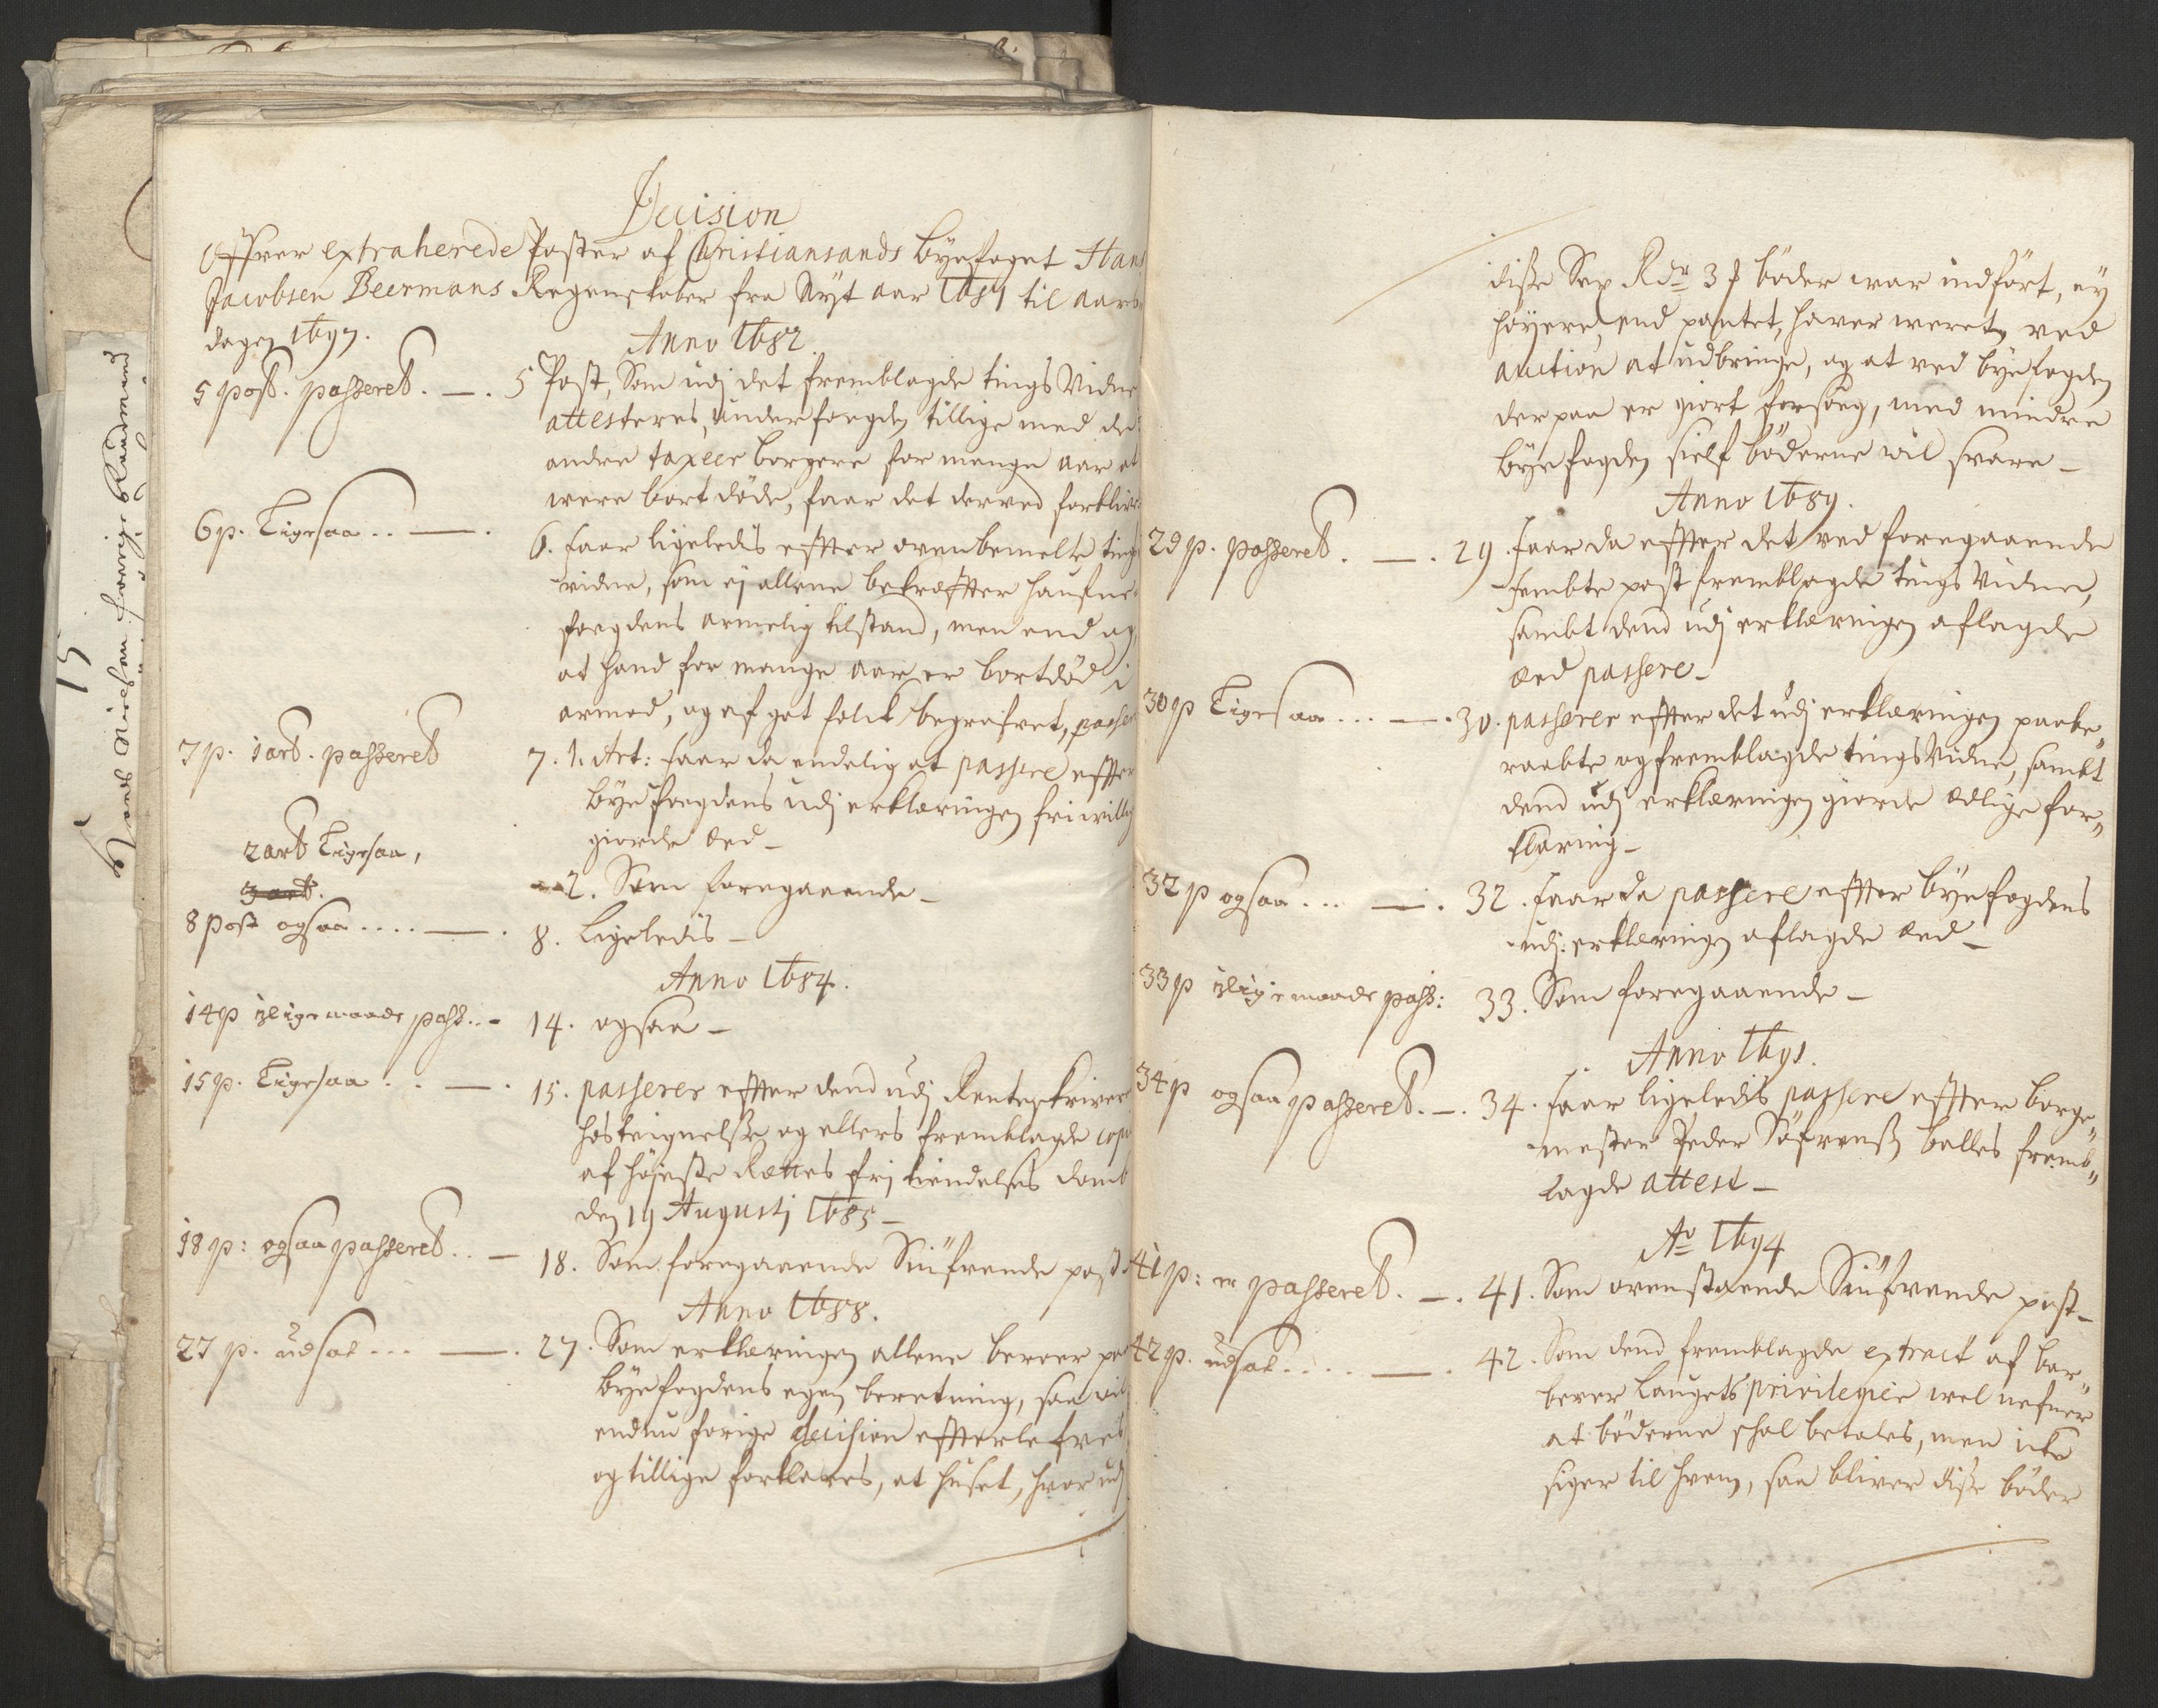 Decision
Offver extraherede Poster af Christiansands byefoget Hans
Jacobsen Beermans Regenskaber fra Nyt aar 1681 til aars
dagen 1697.
Anno 1682
5 post. passeret. — . 5 Post, Som udj det fremblagde tings Vidne
attesteres, underfoegden tillige med de
andre taxeer borgere for mange aar at
were bortdöde, faar det derved forblive
6 p. Ligesaa .. — . 6. faar ligeledis effter ovenbemelte tings
vidne, som ej allene bekreffter haufne
foegdens armelig tilstand, men end og
at hand for mange aar er bortdöd i
armod, og af got folck begrafvet, passer
7 p. 1 art. passeret 7. 1. Art: faar da endelig at passere effter
byefoegdens udj erkleringen friwillig
giorde Eed –
2 art Ligesaa, 2. Som foregaaende –
3 art.
8 post ogsaa .... — . 8. Ligeledis –
Anno 1684.
14 p iligemaade pass.. – 14. ogsaa –
15 p. Ligesaa . . — . 15. passerer effter dend udj Renteskriver
hosteignelse og ellers fremblagde copi
af höjeste Rettes frj kiendelses domb
den 19 Augustj 1685 –
18 p: ogsaa passeret . . — 18. Som foregaaende Siufvende post
Anno 1688.
27 p. udsat ... — . 27. Som erkleringen allene beroer paa
byefogdens egen beretning, saa vil
endnu forige decision effterlefves
og tillige forklares, at huset, hvor udj
15
Niels­en forrige Raadmand
disse Sex Rdr 3 ƒ böder war indfört, ey
höyere, end pantet, haver weret, ved
auction at udbringe, og at ved byefogden
derpaa er giort forsög, med mindre
byefogden sielf böderne wil svare –
Anno 1689.
29 p. passeret . — . 29. faar da effter det ved foregaaende
fembte post fremblagde tings Vidne,
sambt dend udj erkleringen aflagde
Eed passere –
30 p Ligesaa ... — . 30. passerer effter det udj erkleringen paabe„
raabte og fremblagde tings Vidne, sambt
dend udj erkleringen giorde Edlige for„
klaring –
32 p ogsaa ... — . 32. faar da passere effter byefogdens
udj: erkleringen aflagde Eed –
33 p iligemaade pass: 33. Som foregaaende –
Anno 1691.
34 p ogsaa passeret . — . 34. faar ligeledis passere effter borge„
mester Peder Söfrenss balles fremb„
lagde attest –
Ao 1694
41 p: er passeret . — . 41. Som ovenstaaende Siufvende post –
42 p. udsat .... — . 42. Som dend fremblagde extract af bar„
berer Laugets privilegie wel nefner
at böderne skal betales, men icke
siger til hvem, saa bliver disse böder